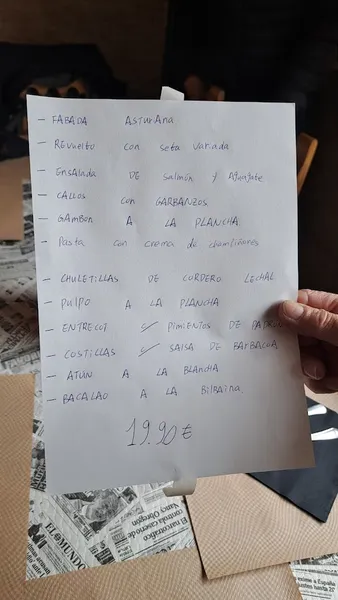 - FABADA ASTURANA
- REVUELTO CON SETA VARIADA
- ENSALADA DE SALMÓN Y AGUAJATE
- CALLOS CON GARBANZOS
- GAMBON A LA PLANCHA
- PASTA CON CREMA DE CHAMPIÑONES
- CHULETILLAS DE CORDERO LECHAL
- PULPO A LA PLANCHA
- ENTRECOT S/ PIMIENTOS DE PADRON
- COSTILLAS S/ SALSA DE BARBACOA
- ATUN A LA BLANCHA
- BACALAO A LA BILBAINA.
19.90€
EL MUNDO
El narcotraficante
controla caserío de
Nancy Obregón